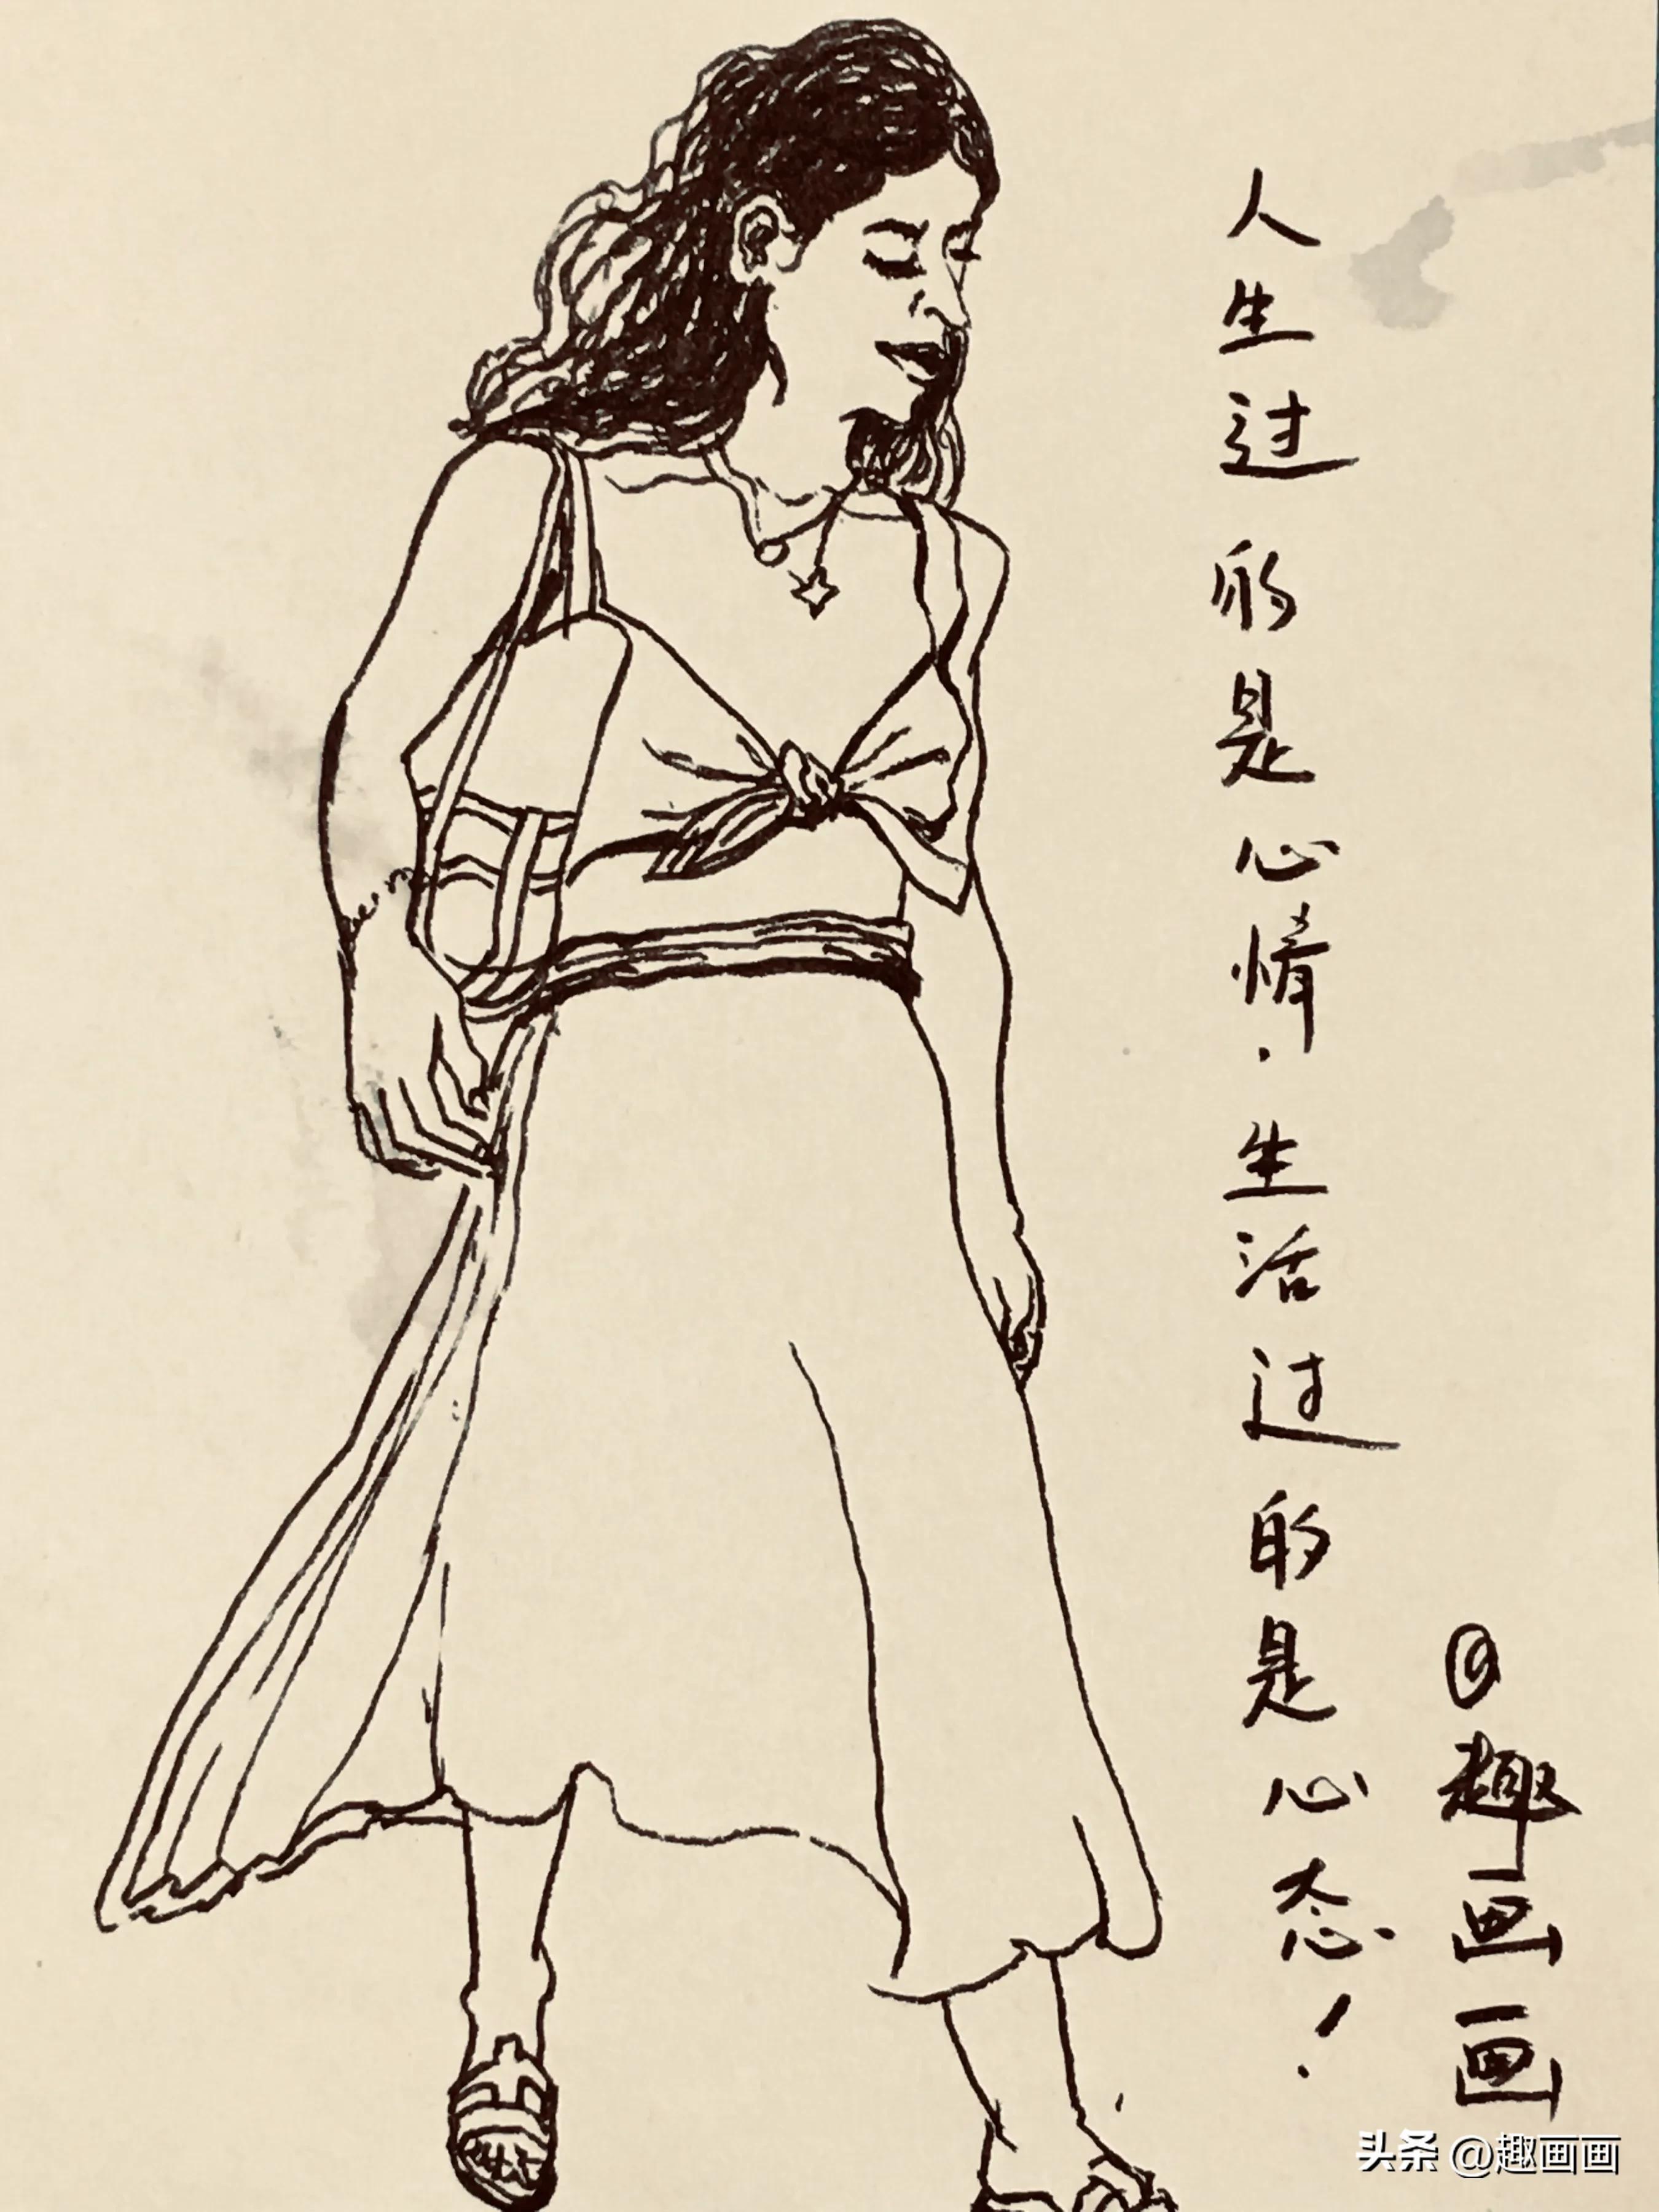 人生过的是心情.生活过的是心态!
@趣画画
头条 @趣画画